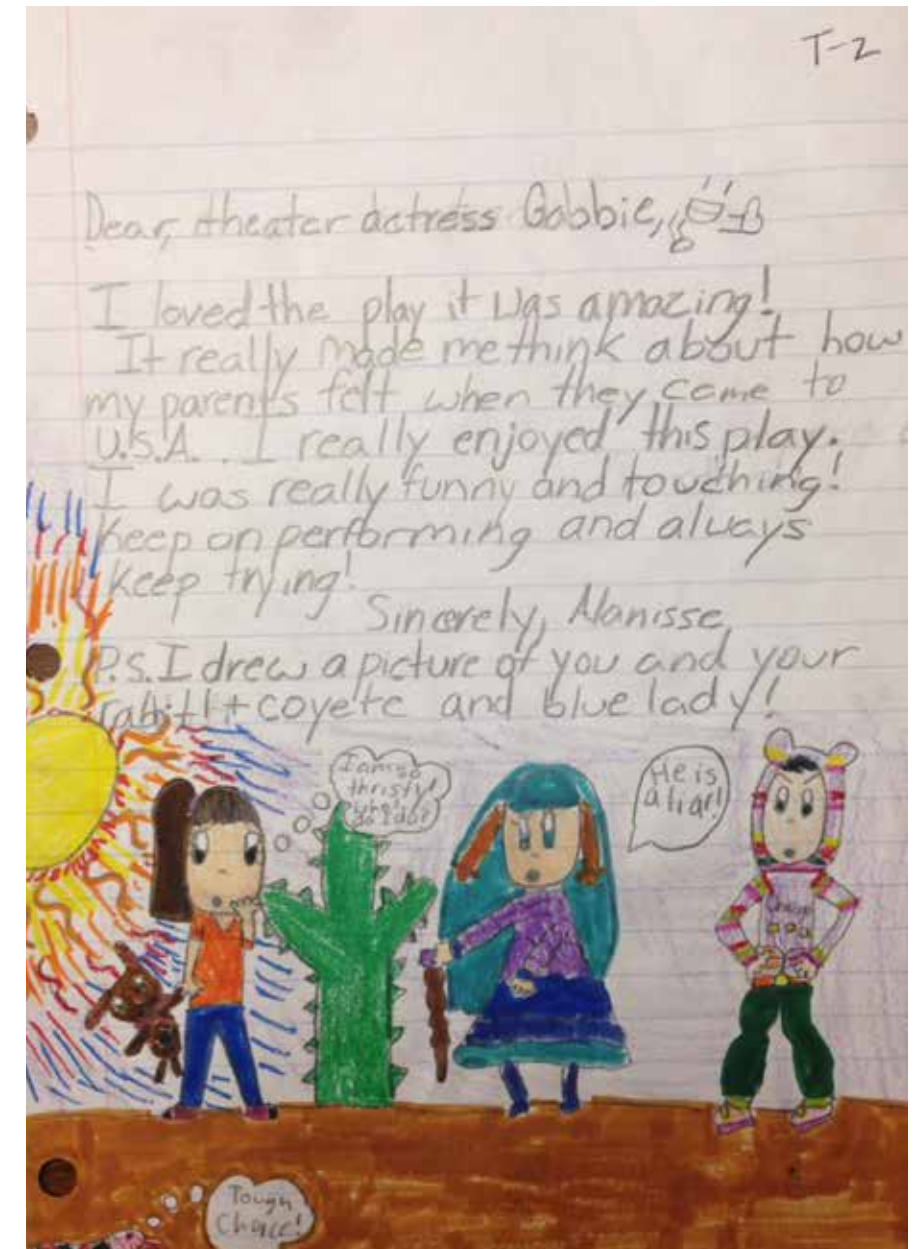 T-2
Dear, theater actress Gabbie,
I loved the play it was amazing!
It really made me think about how
my parents felt when they come to
U.S.A. . I really enjoyed this play.
I was really funny and touching!
Keep on performing and always
keep trying!
Sincerely, Alanisse
P.S. I drew a picture of you and your
rabitt + coyete and blue lady!
I am so
thristy!
what
do I do?
He is
a liar!
Tough
Choice!